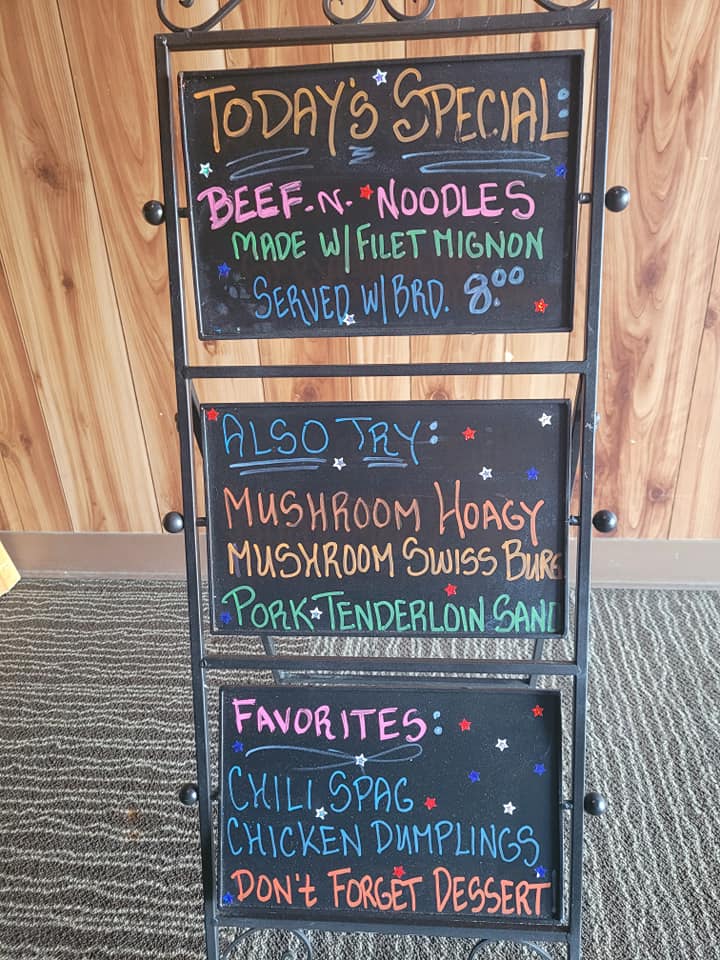 TODAY'S SPECIAL:
BEEF-N-NOODLES
MADE W/FILET MIGNON
SERVED W/BRD. 8.00
ALSO TRY:
MUSHROOM HOAGY
MUSHROOM SWISS BURG
PORK TENDERLOIN SAND
FAVORITES:
CHILI SPAG
CHICKEN DUMPLINGS
DON't FORGET DESSERT